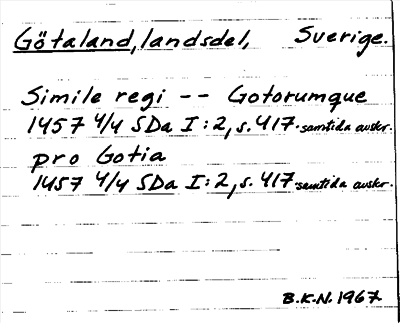 Götaland, landsdel, Sverige.
Simile regi -- Gotorumque
1457 4/4 SDa I:2, s. 417. samtida avskr.
pro Gotia
1457 4/4 SDa I:2, s. 417. samtida avskr.
B.K.N. 1967